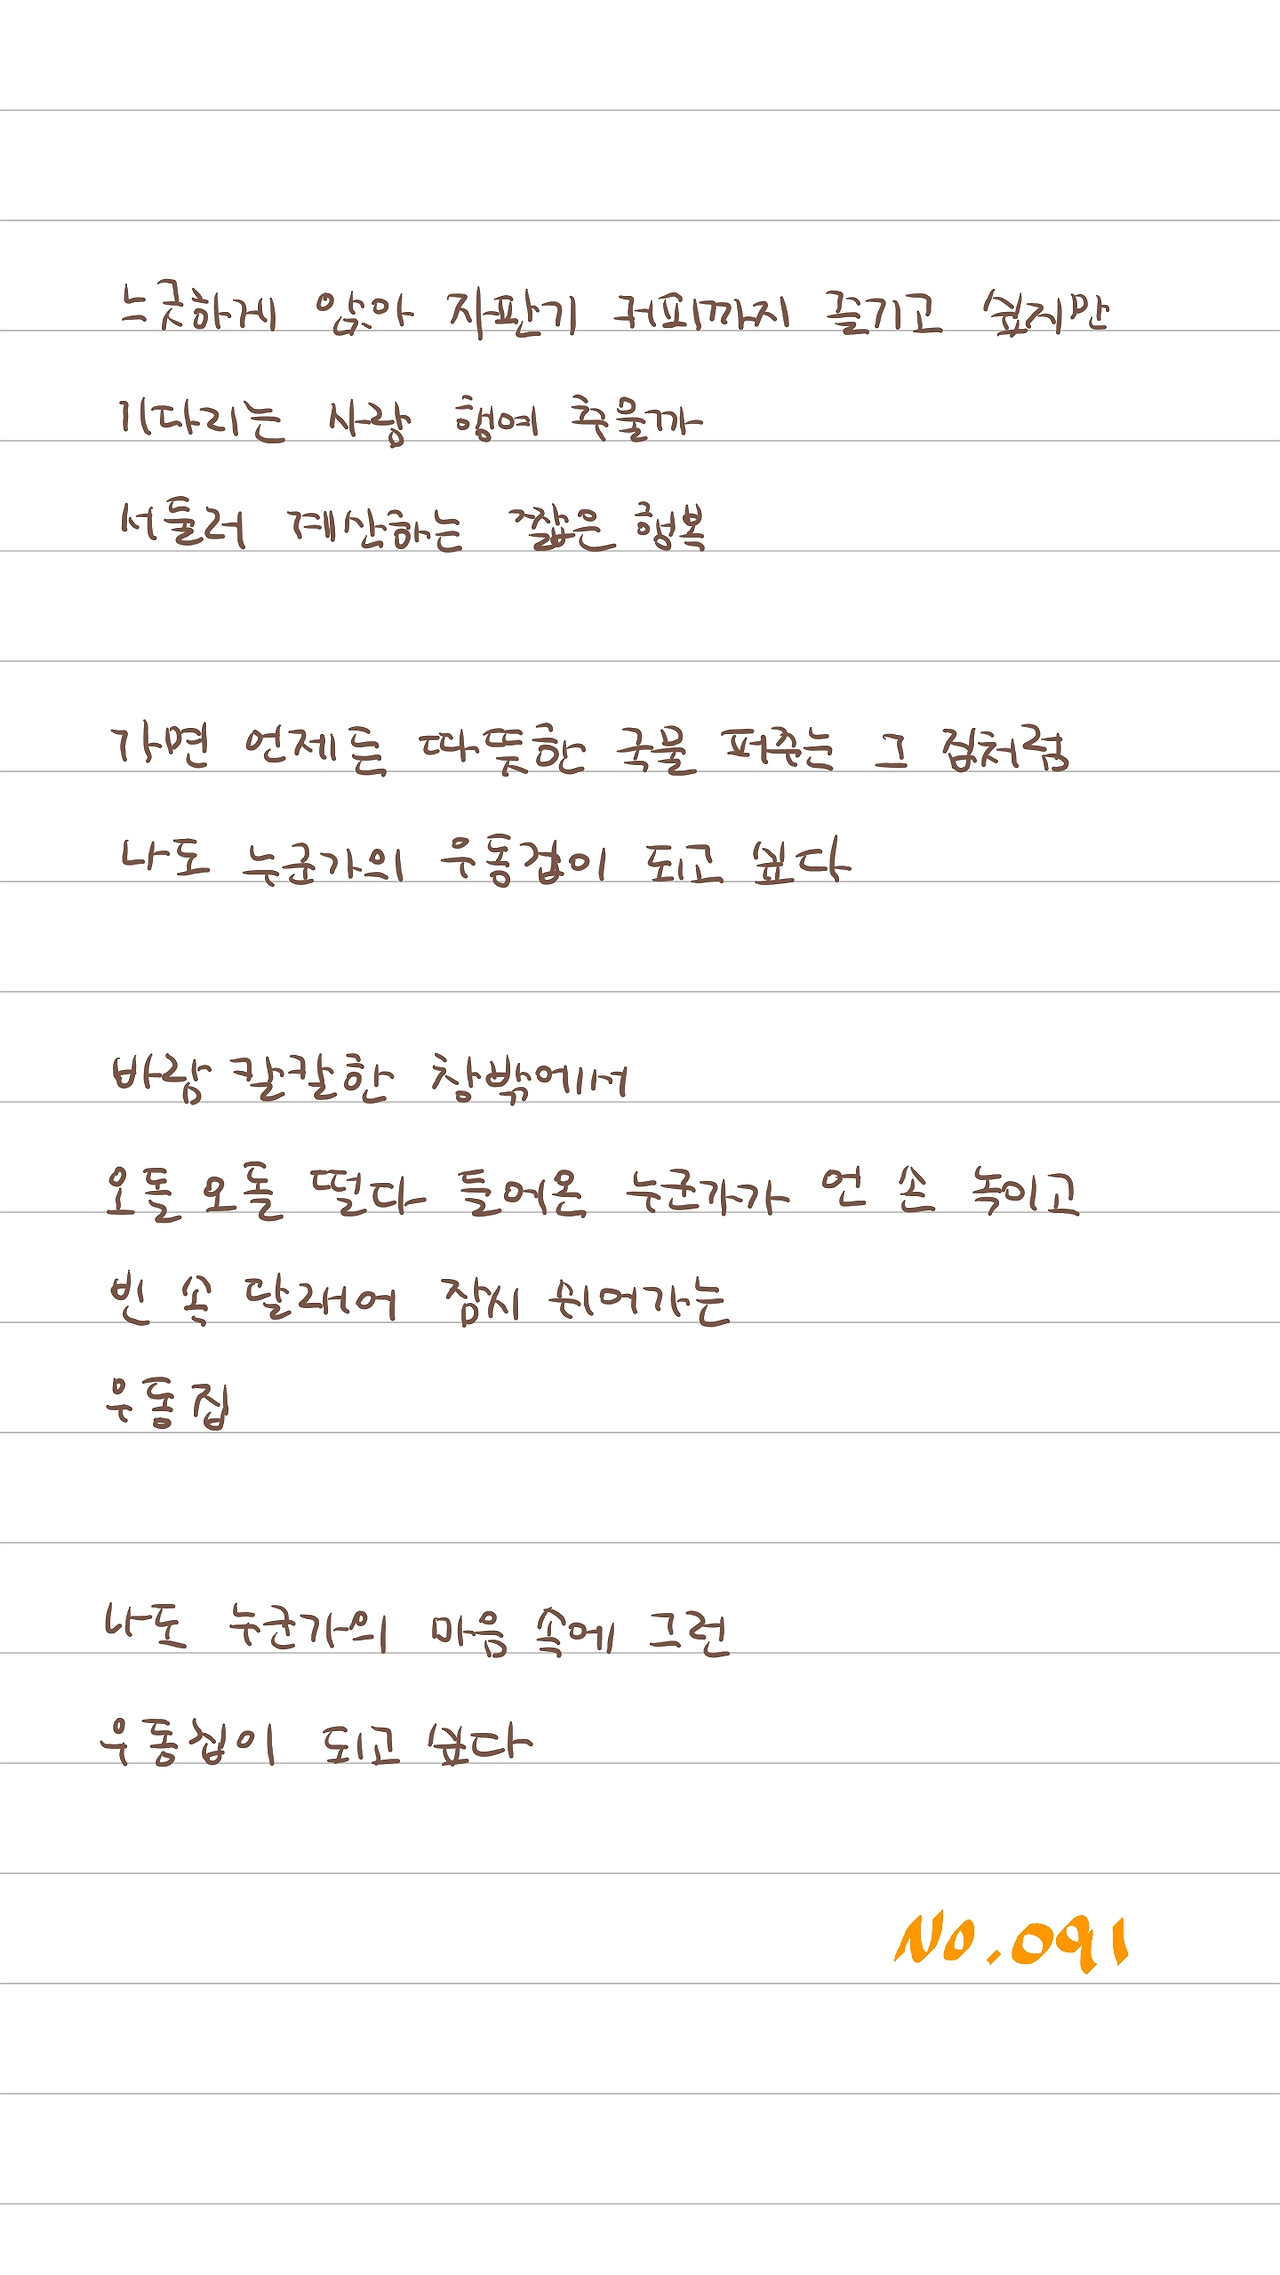 느긋하게 앉아 자판기 커피까지 즐기고 싶지만
기다리는 사랑 행여 추울까
서둘러 계산하는 짧은 행복
가면 언제든 따뜻한 국물 퍼주는 그 집처럼
나도 누군가의 우동집이 되고 싶다
바람 칼칼한 창밖에서
오돌오돌 떨다 들어온 누군가가 언 손 녹이고
빈 속 달래어 잠시 쉬어가는
우동집
나도 누군가의 마음 속에 그런
우동집이 되고 싶다
No.091